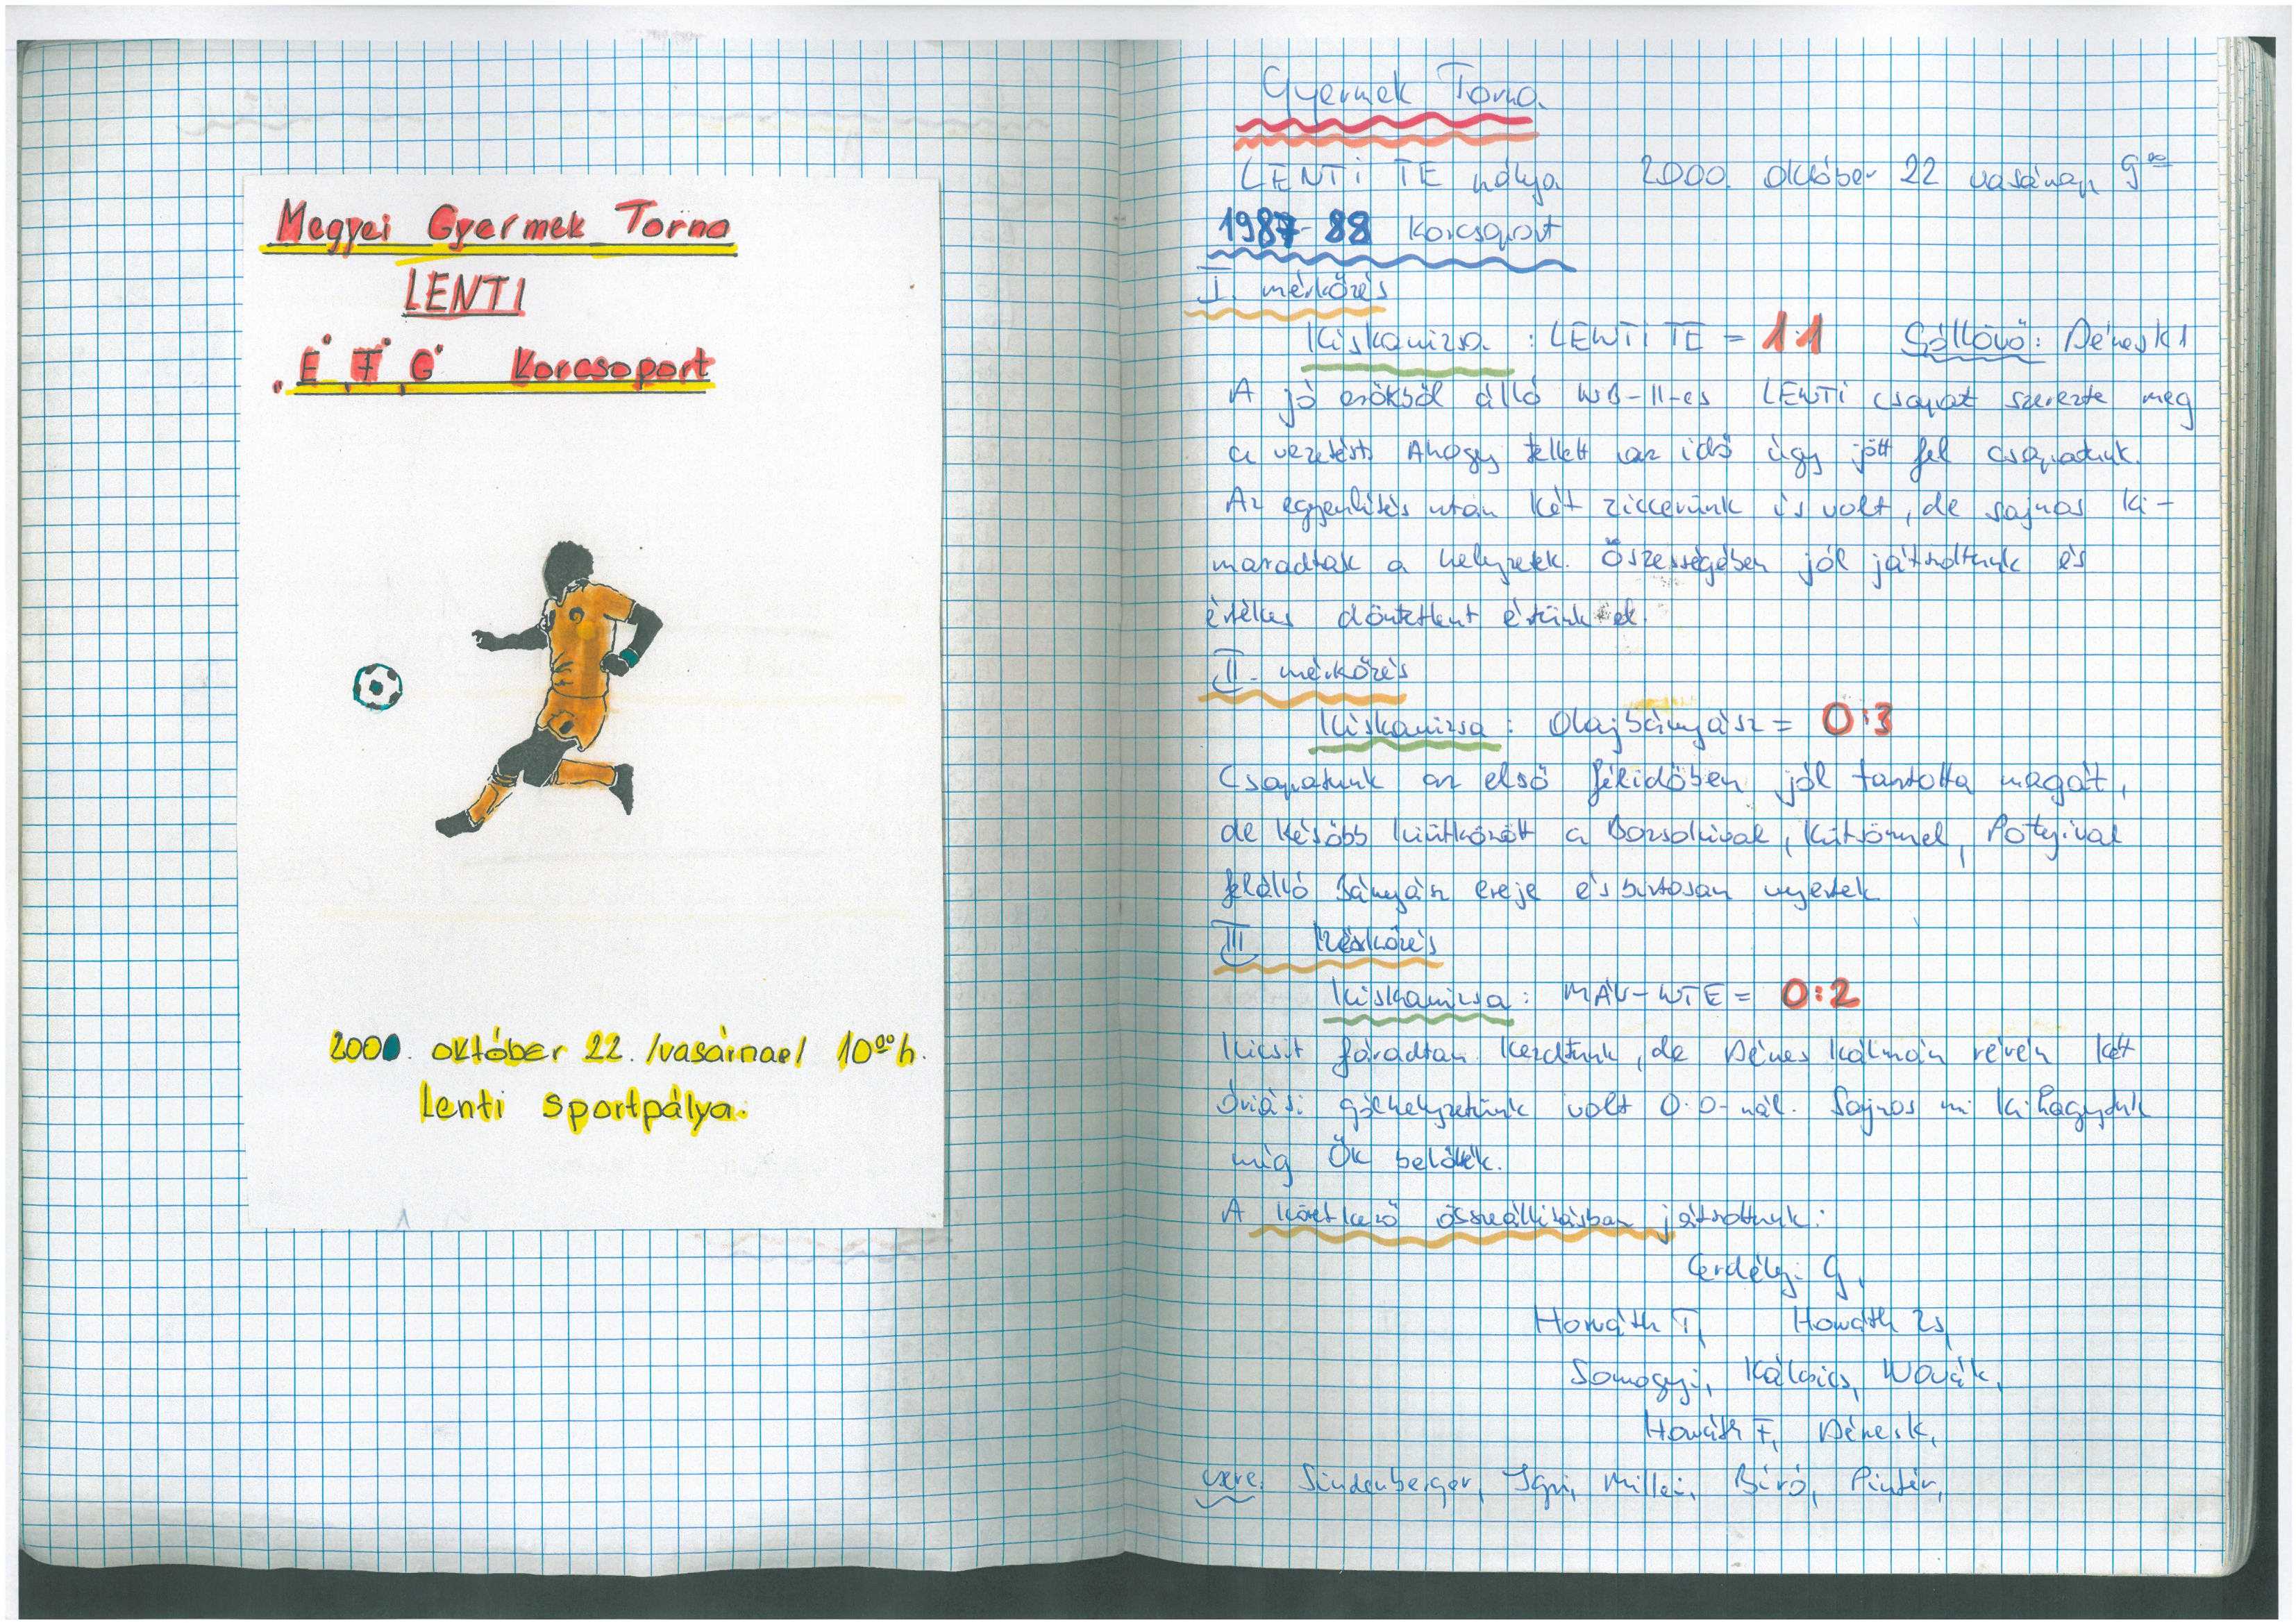 Megyei Gyermek Torna
LENTI
E F G Korcsoport
2000. október 22. /vasárnap/ 10⁰⁰ h.
Lenti sportpálya.
Gyermek Torna
LENTI TE pálya 2000. október 22 vasárnap 9⁰⁰
1987-88 korcsoport
I. mérkőzés
Kiskanizsa : LENTI TE = 1:1 Góllövő: Dénes K 1
A jó erőkből álló NB-II-es LENTI csapat szerezte meg
a vezetést. Ahogy tellett az idő úgy jött fel csapatunk.
Az egyenlítés után két ziccerünk is volt, de sajnos ki-
maradtak a helyzetek. Öszességében jól játszottunk és
értékes döntetlent értünk el.
II. mérkőzés
Kiskanizsa : Olajbányász = 0:3
Csapatunk az első félidőben jól tartotta magát,
de később kiütközött a Bozsokival, Kutsónnel, Potyival
felálló Bányász ereje és biztosan nyertek
III mérkőzés
Kiskanizsa : MÁV-NTE = 0:2
Kicsit fáradtan kezdtünk, de Dénes Kálmán révén két
óriási gólhelyzetünk volt 0:0-nál. Sajnos mi kihagytuk
míg Ők belőtték.
A következő összeállításban játszottunk:
Gerdelyi G,
Horváth T, Horváth Zs,
Somogyi, Kálcics, Novák,
Horváth F, Dénes K,
csere: Sindenberger, Igri, Millei, Bíró, Pintér,